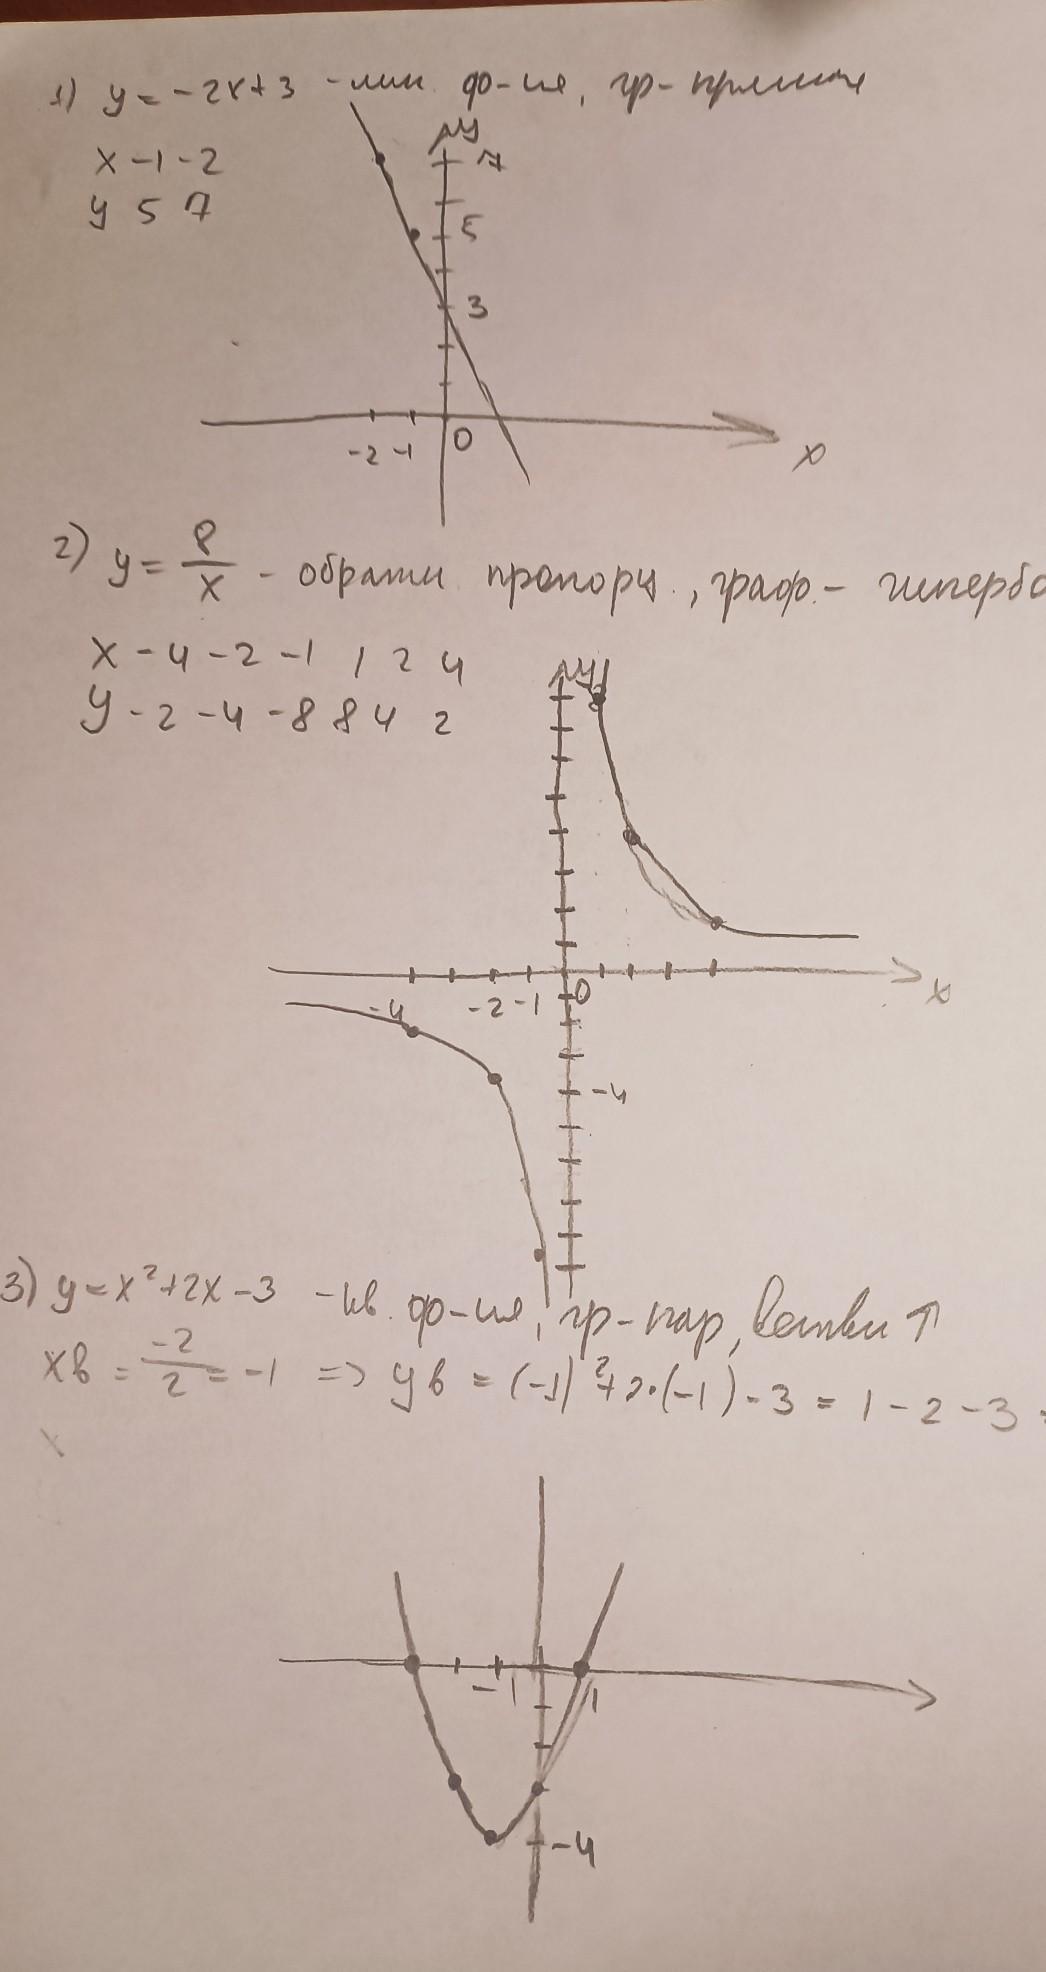 1) y = -2x+3 - лин. ф-ия, гр- прямая
x -1 -2
y 5 7
y
7
5
3
-2 -1 0
x
2) y = 8/x - обратн. пропорц., граф. - гипербо
x -4 -2 -1 1 2 4
y -2 -4 -8 8 4 2
y
-4 -2 -1 0
x
-4
3) y = x²+2x-3 - кв. ф-ия, гр-пар, ветви ↑
xв = -2/2 = -1 => yв = (-1)²+2·(-1)-3 = 1-2-3 =
-1 1
-4